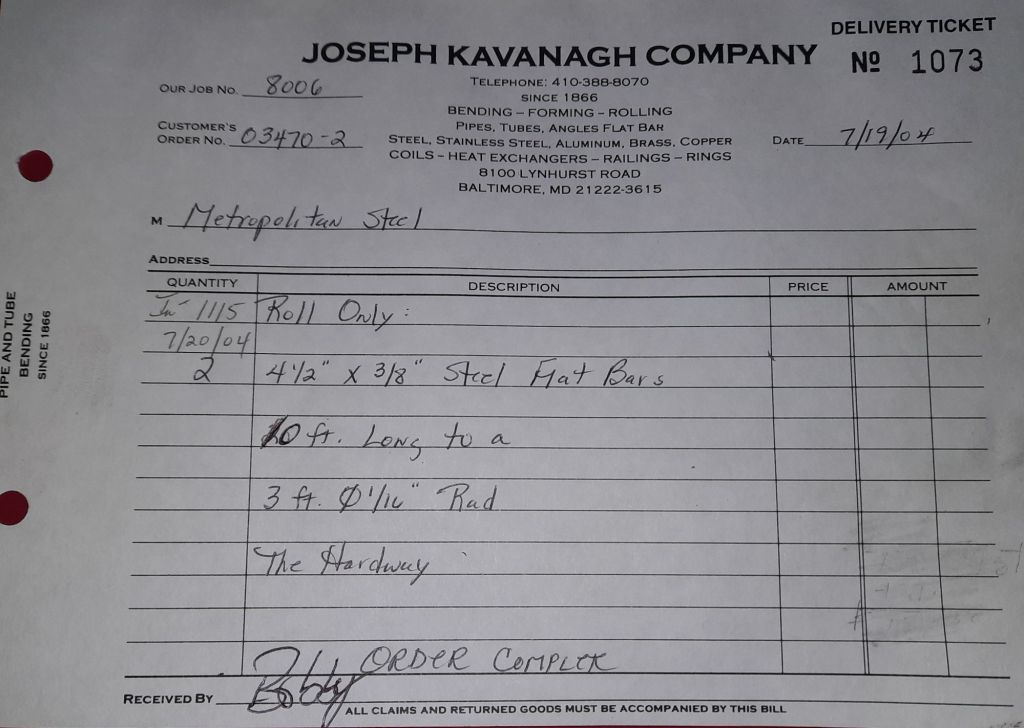 DELIVERY TICKET
JOSEPH KAVANAGH COMPANY
Nº 1073
OUR JOB NO. 8006
TELEPHONE: 410-388-8070
SINCE 1866
BENDING – FORMING – ROLLING
CUSTOMER'S ORDER NO. 03470-2
PIPES, TUBES, ANGLES FLAT BAR
STEEL, STAINLESS STEEL, ALUMINUM, BRASS, COPPER
DATE 7/19/04
COILS – HEAT EXCHANGERS – RAILINGS – RINGS
8100 LYNHURST ROAD
BALTIMORE, MD 21222-3615
M Metropolitan Steel
ADDRESS
QUANTITY DESCRIPTION PRICE AMOUNT
In 1115 Roll Only:
7/20/04
2 4 1/2" X 3/8" Steel Flat Bars
10 ft. Long to a
3 ft. Ø 1/16" Rad
The Hardway
ORDER COMPLETE
RECEIVED BY Bobby
ALL CLAIMS AND RETURNED GOODS MUST BE ACCOMPANIED BY THIS BILL
PIPE AND TUBE
BENDING
SINCE 1866